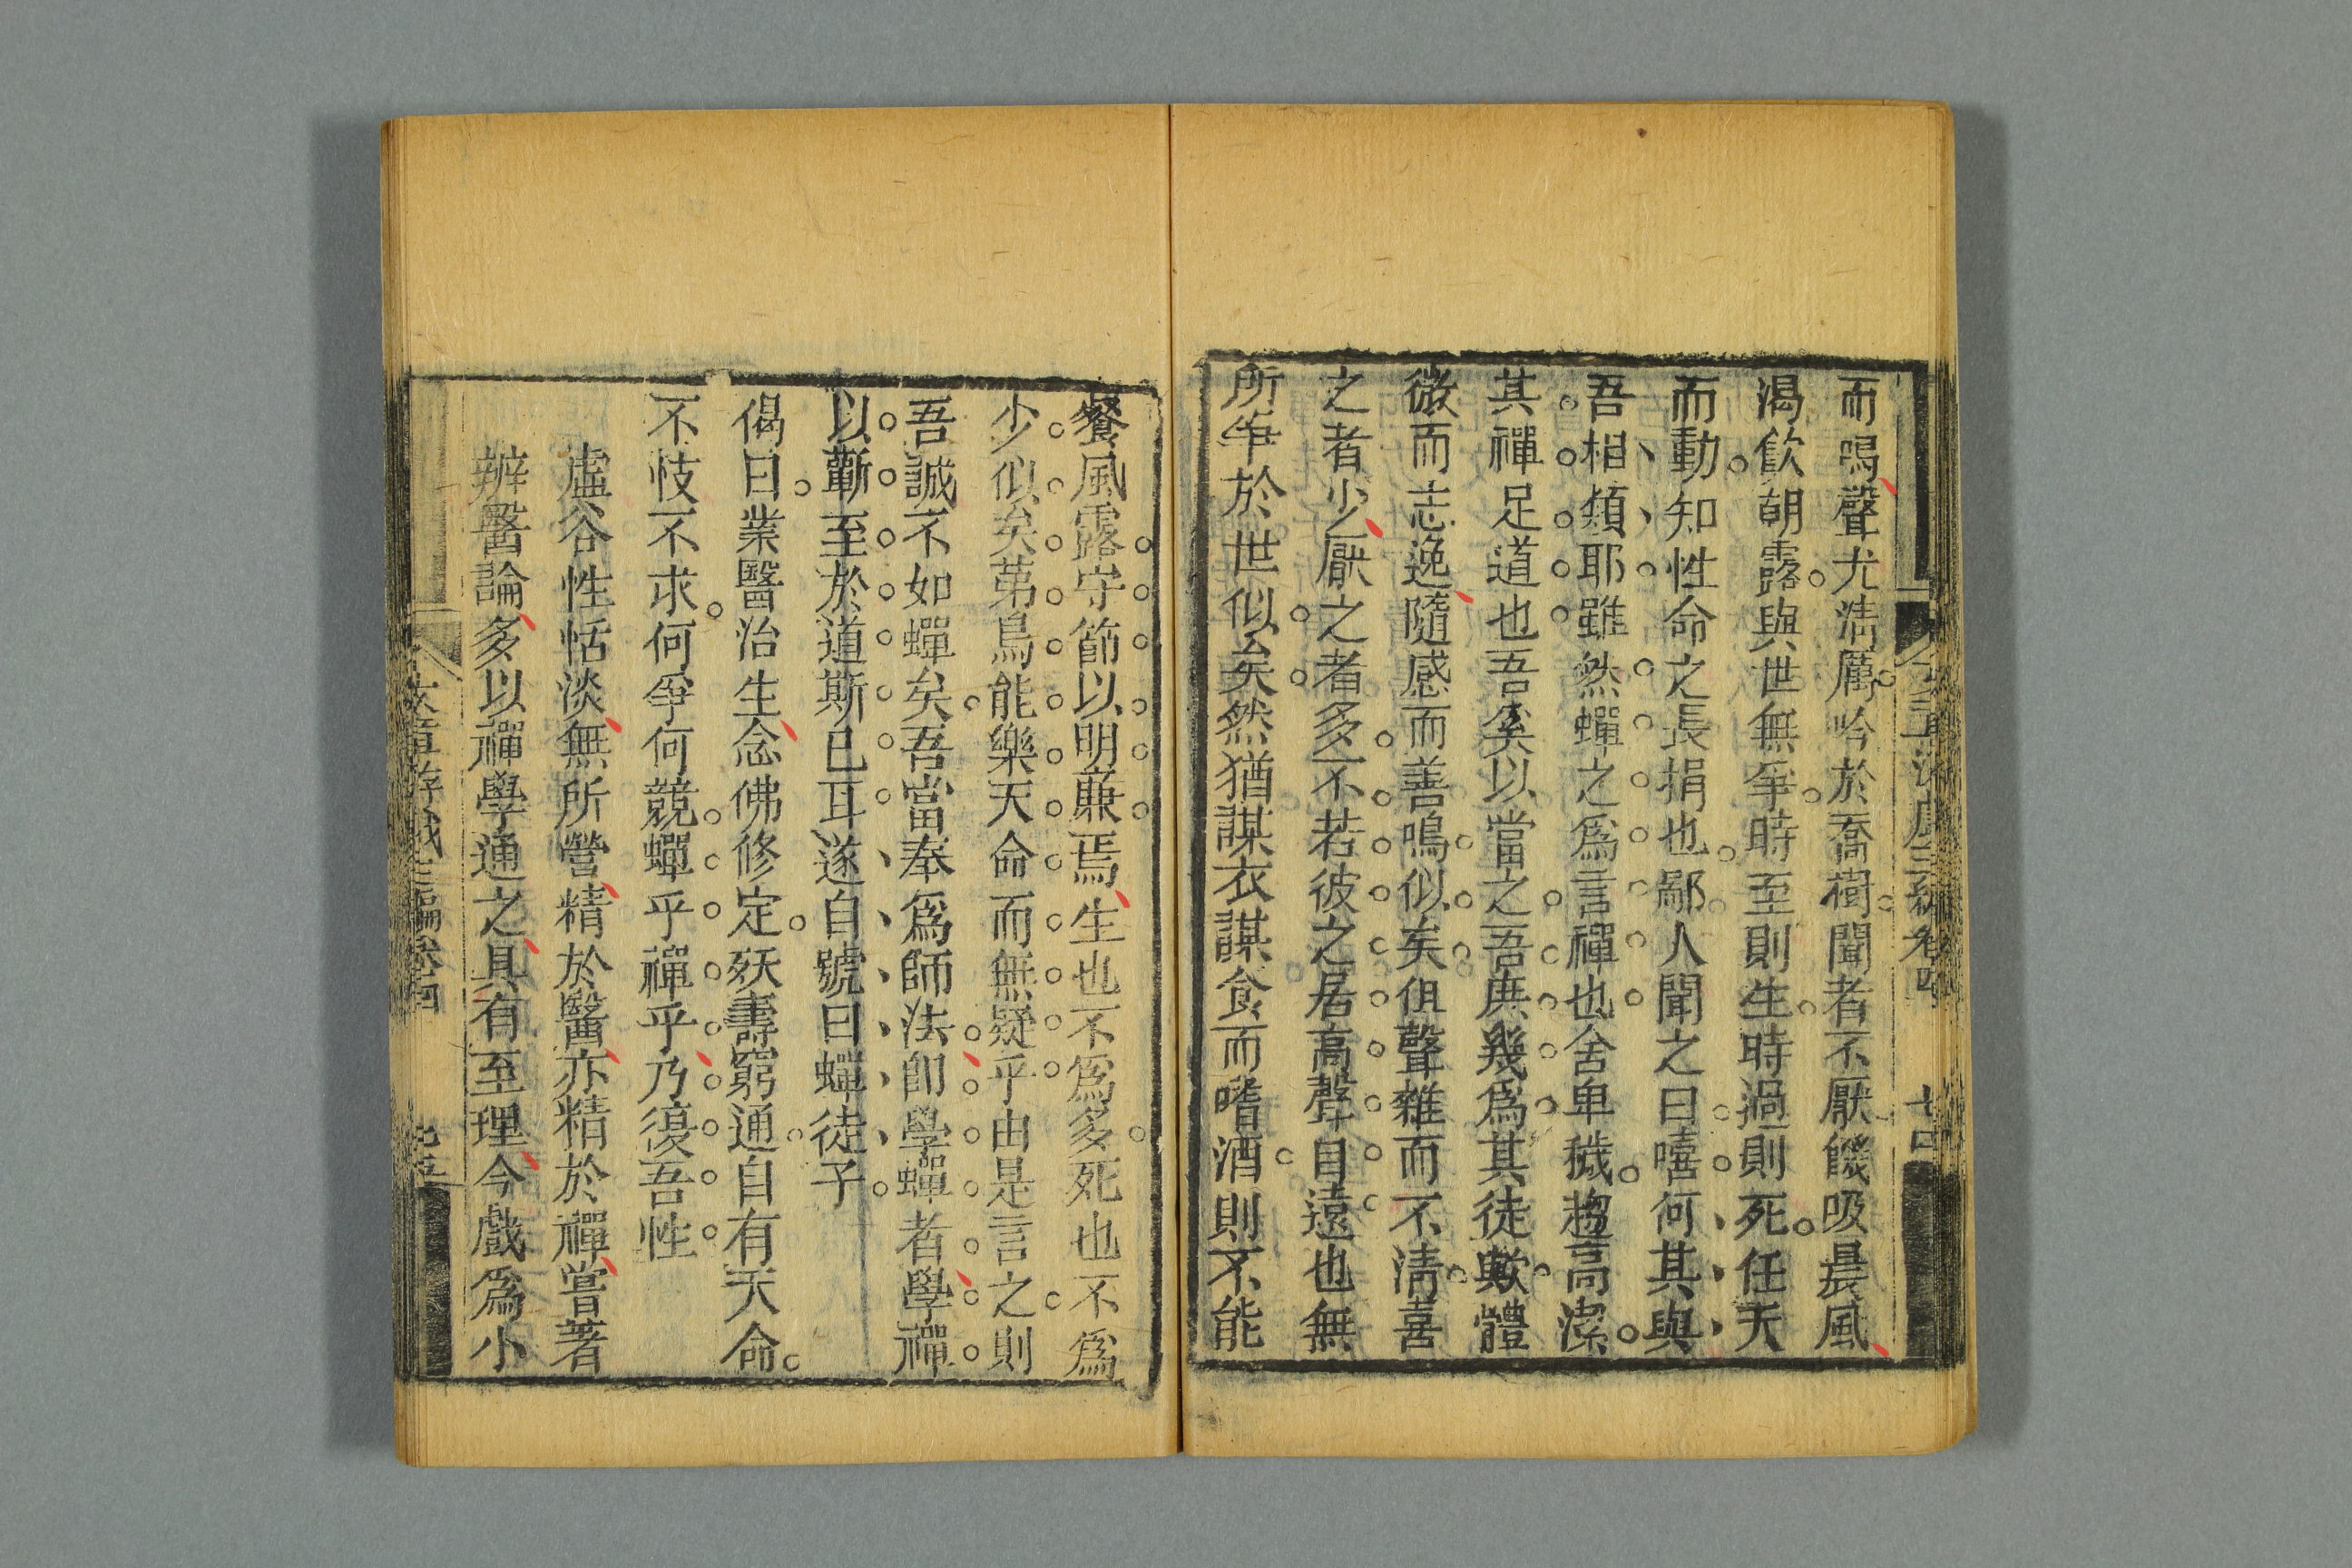 而鳴聲尤淸厲吟於喬樹聞者不厭饑吸晨風
渴飲朝露與世無爭時至則生時過則死任天
而動知性命之長捐也鄙人聞之曰嘻何其與
吾相類耶雖然蟬之爲言禪也舍卑穢趨高潔
其禪足道也吾奚以當之吾庶幾爲其徒歟體
微而志逸隨感而善鳴似矣伹聲雜而不淸喜
之者少厭之者多不若彼之居高聲自遠也無
所爭於世似矣然猶謀衣謀食而嗜酒則不能
餐風露守節以明廉焉生也不爲多死也不爲
少似矣苐烏能樂天命而無疑乎由是言之則
吾誠不如蟬矣吾當奉爲師法卽學蟬者學禪
以蘄至於道斯已耳遂自號曰蟬徒子
偈曰業醫治生念佛修定殀壽窮通自有天命
不忮不求何爭何競蟬乎禪乎乃復吾性
虛谷性恬淡無所營精於醫亦精於禪嘗著
辨醫論多以禪學通之具有至理今戲爲小
文章游戲三編卷四